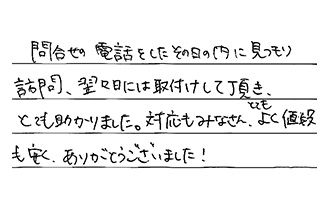 問合せの電話をしたその日の内に見つもり
訪問、翌々日には取付けして頂き、
とても助かりました。対応もみなさん、とてもよく値段
も安く、ありがとうございました!